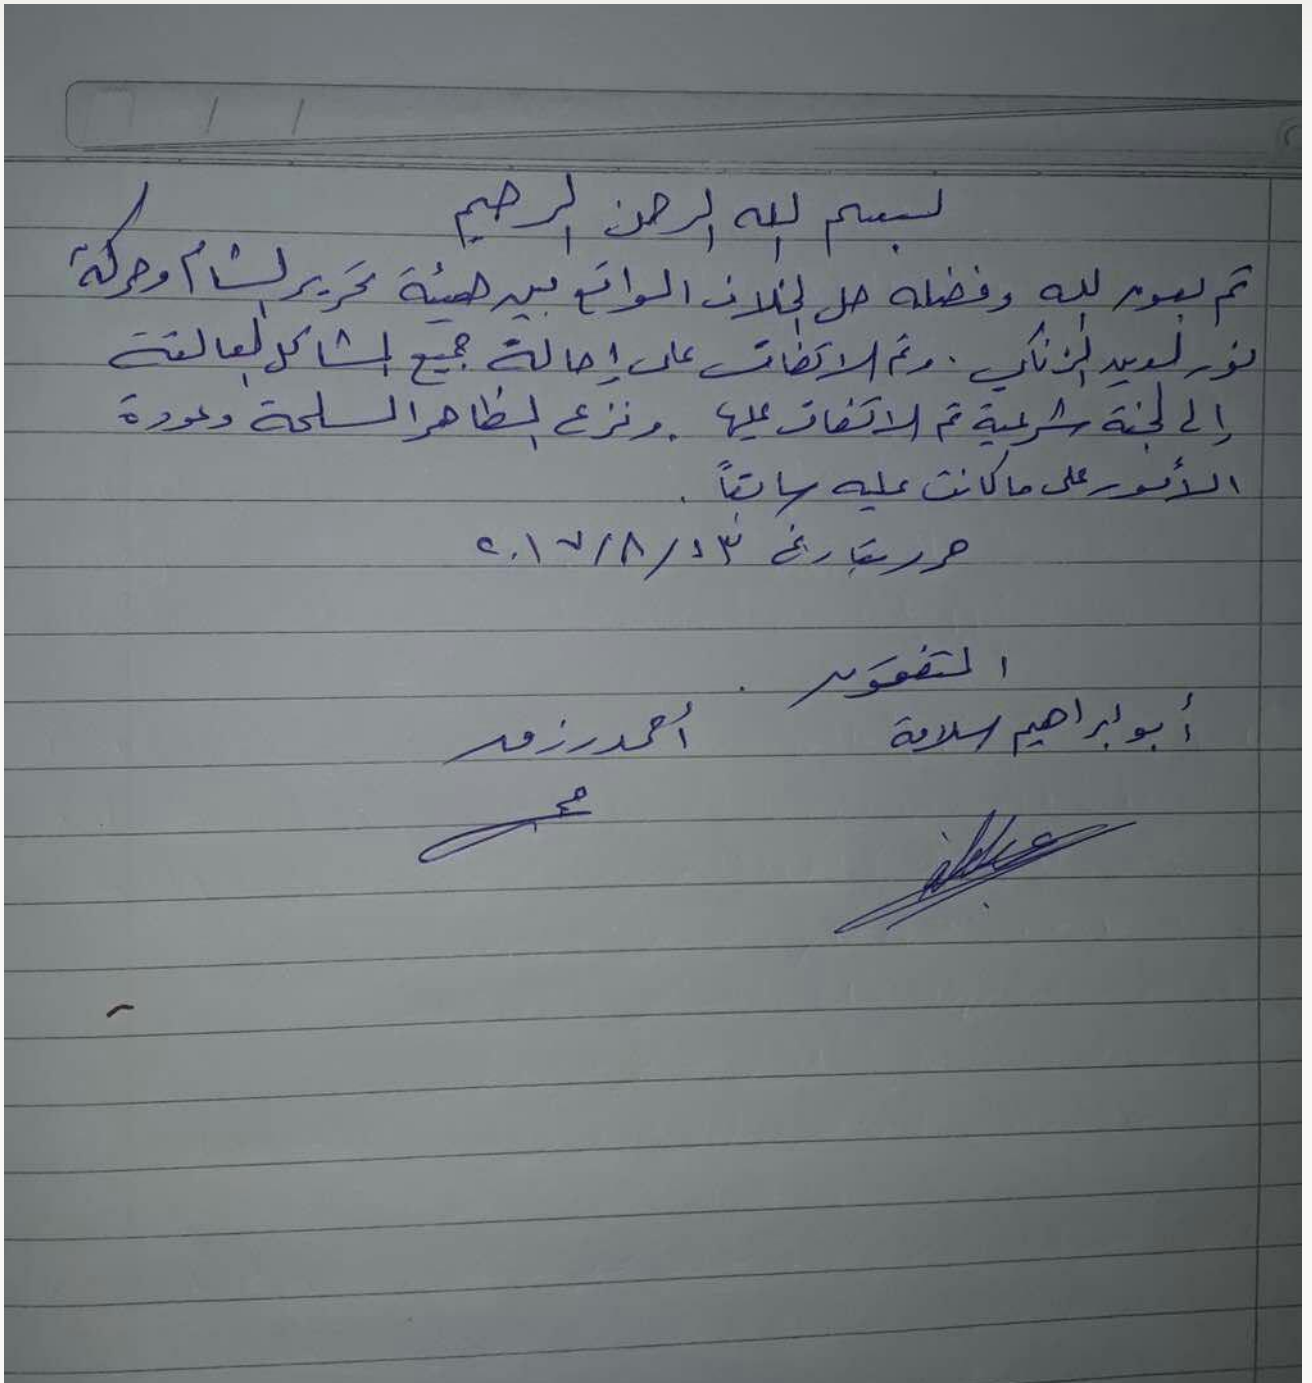 بسم الله الرحمن الرحيم
تم بعون الله وفضله حل الخلاف الواقع بين هيئة تحرير الشام وحركة
نور الدين الزنكي . وتم الاتفاق على إحالة جميع المشاكل العالقة
إلى لجنة شرعية تم الاتفاق عليها . ونزع المظاهر المسلحة وعودة
الأمور على ما كانت عليه سابقاً .
حرر بتاريخ /٨/٢٠١٧
المتفقون .
أبو ابراهيم سلامة أحمد رزق